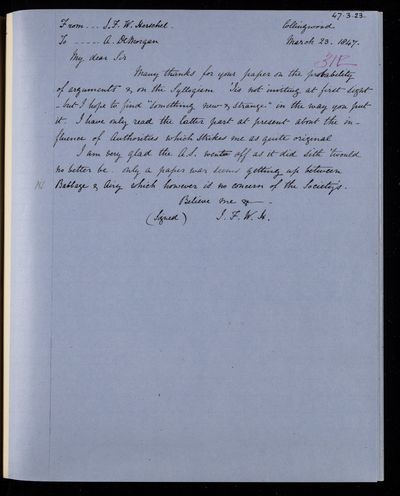 47.3.23.
From - - - J. F. W. Herschel. Collingwood
To - - - - - A. DeMorgan March 23. 1847.
My dear Sir
Many thanks for your paper on the probability
of arguments & on the Syllogism 'Tis not inviting at first sight
- but I hope to find "something new & strange" in the way you put
it. I have only read the latter part at present about the in-
fluence of Authorities which strikes me as quite original
I am very glad the A.S. went off as it did Sith 'twould
no better be. only a paper war seems getting up between
Babbage & Airy which however is no concern of the Society's.
Believe me &c -
(signed) J. F. W. H.